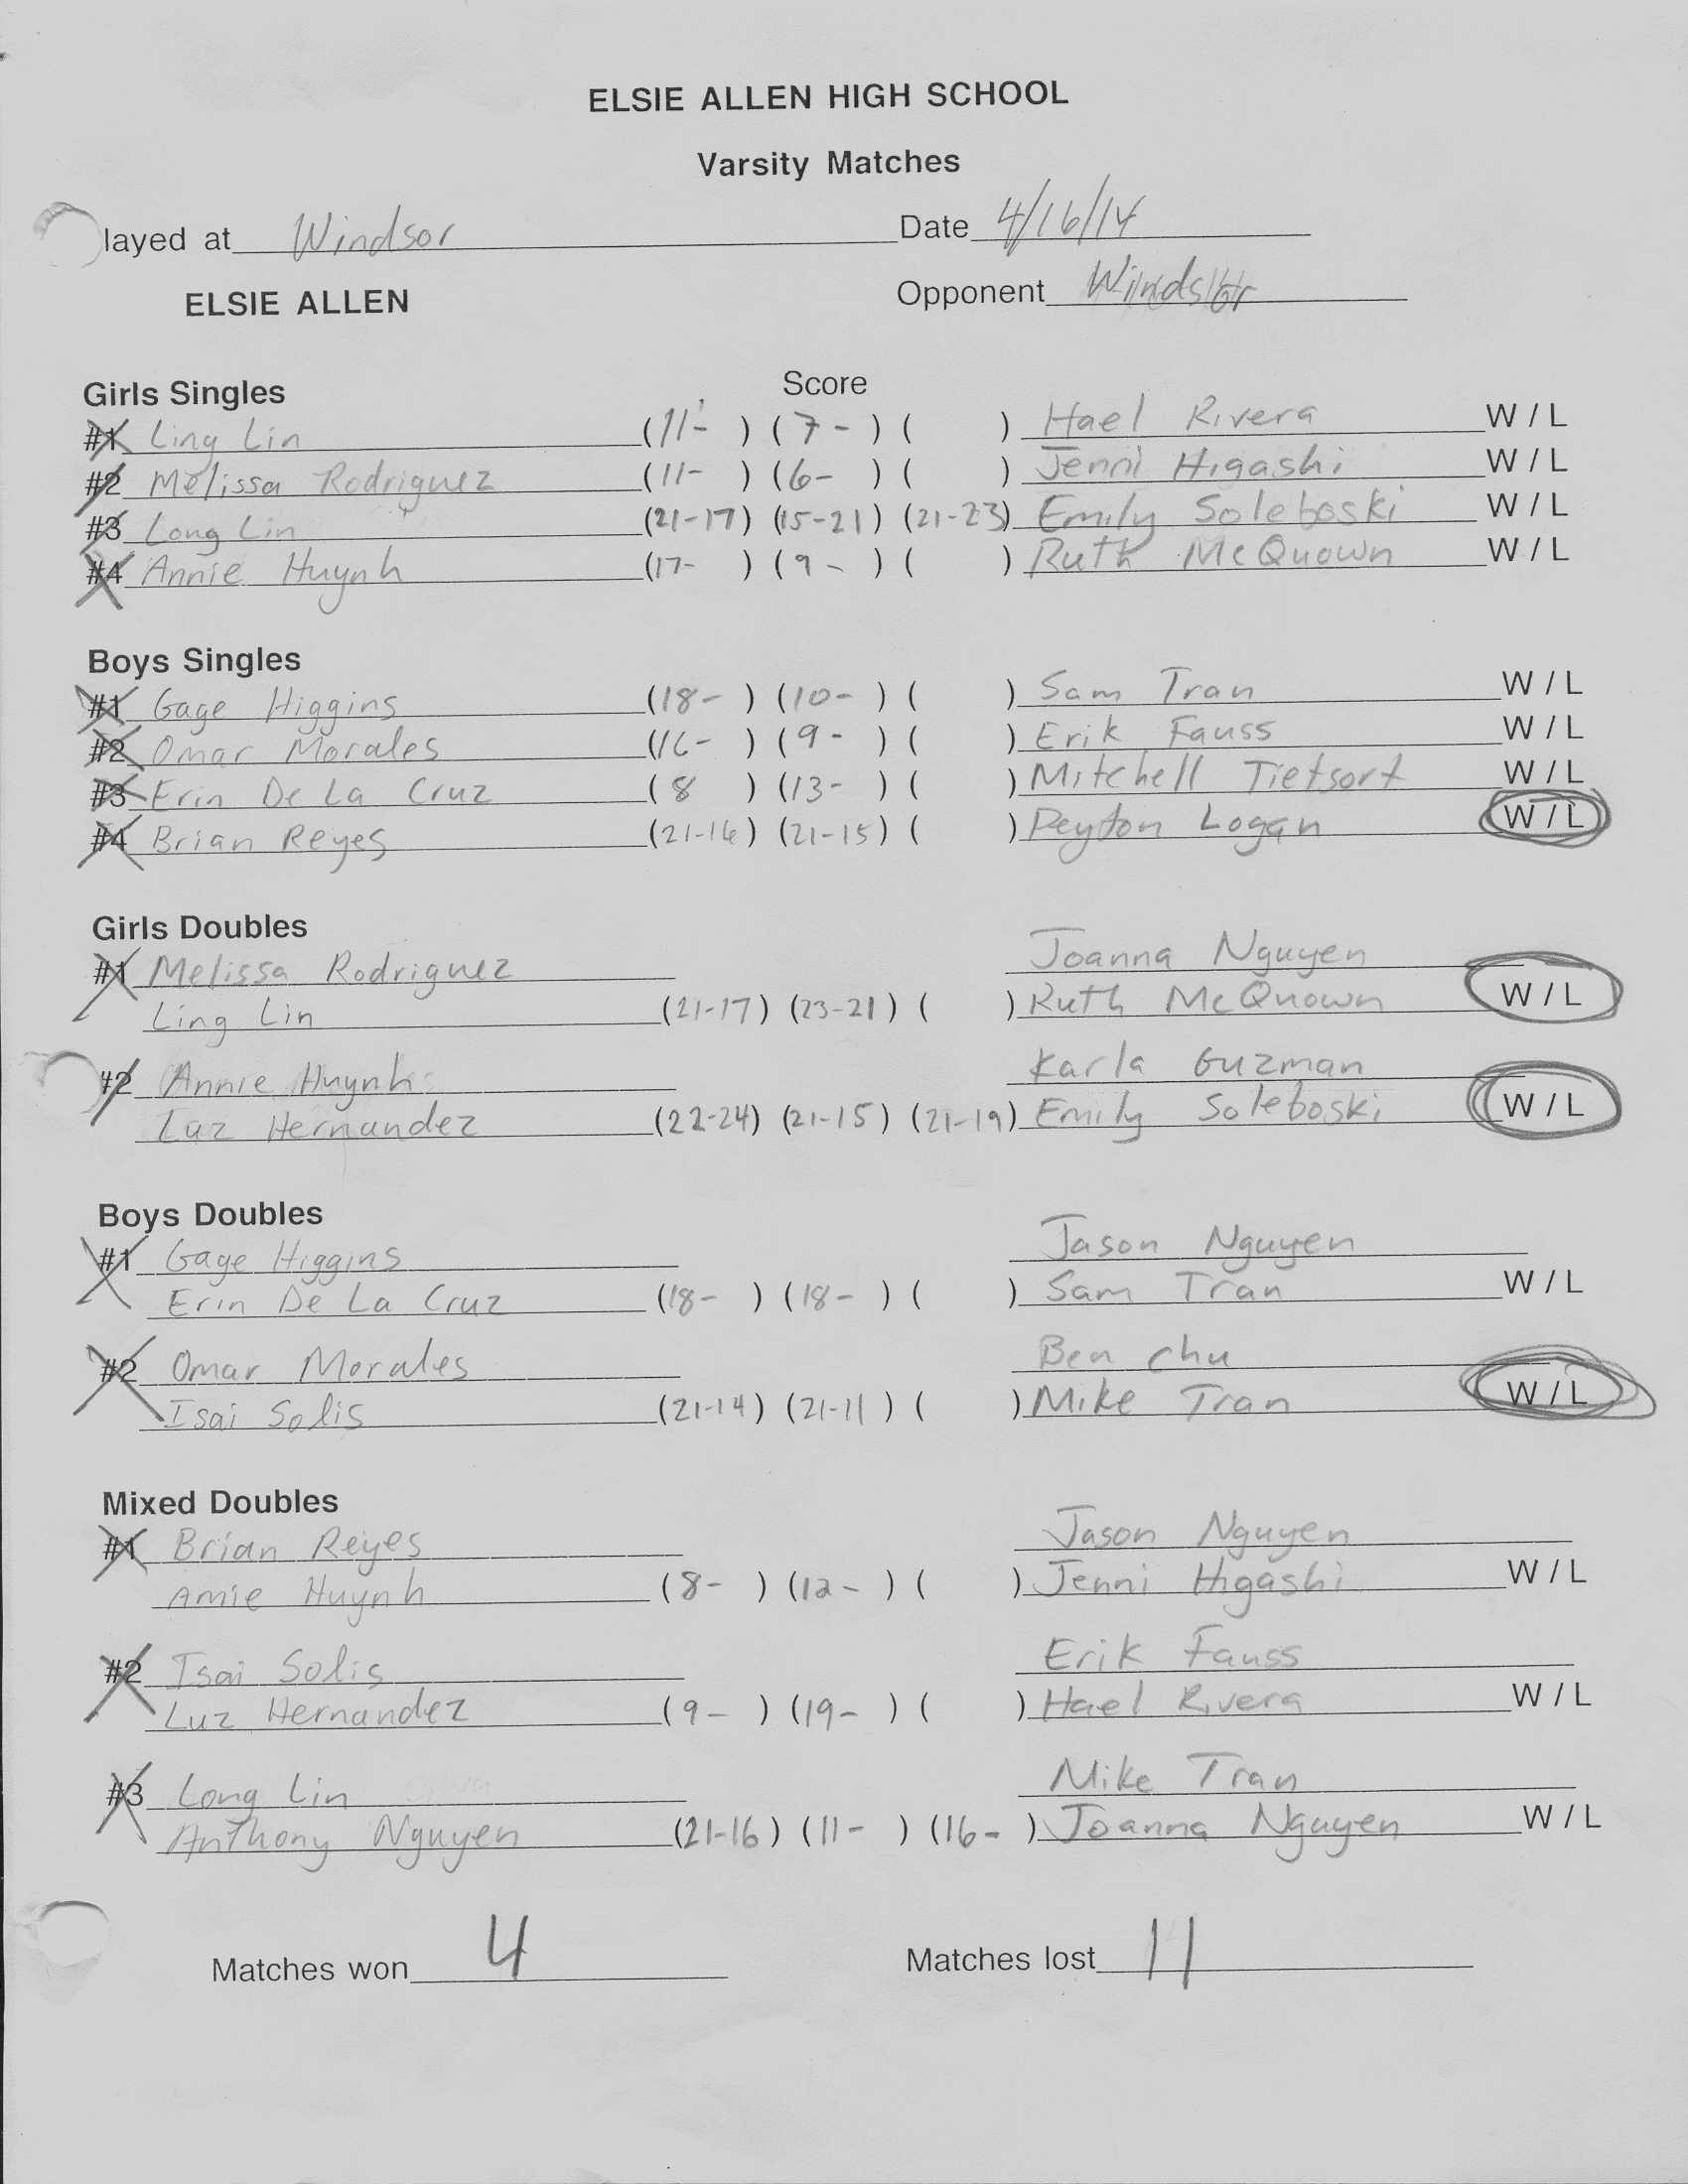 ELSIE ALLEN HIGH SCHOOL
Varsity Matches
layed at Windsor Date 4/16/14
ELSIE ALLEN Opponent Windsor
Girls Singles Score
#1 Ling Lin (11- ) (7- ) ( ) Hael Rivera W / L
#2 Melissa Rodriguez (11- ) (6- ) ( ) Jenni Higashi W / L
#3 Long Lin (21-17) (15-21) (21-23) Emily Soleboski W / L
#4 Annie Huynh (17- ) (9- ) ( ) Ruth McQuown W / L
Boys Singles
#1 Gage Higgins (18- ) (10- ) ( ) Sam Tran W / L
#2 Omar Morales (16- ) (9- ) ( ) Erik Fauss W / L
#3 Erin De La Cruz (8 ) (13- ) ( ) Mitchell Tietsort W / L
#4 Brian Reyes (21-16) (21-15) ( ) Peyton Logan W / L
Girls Doubles
#1 Melissa Rodriguez Joanna Nguyen
Ling Lin (21-17) (23-21) ( ) Ruth McQuown W / L
#2 Annie Huynh Karla Guzman
Luz Hernandez (22-24) (21-15) (21-19) Emily Soleboski W / L
Boys Doubles
#1 Gage Higgins Jason Nguyen
Erin De La Cruz (18- ) (18- ) ( ) Sam Tran W / L
#2 Omar Morales Ben Chu
Isai Solis (21-14) (21-11) ( ) Mike Tran W / L
Mixed Doubles
#1 Brian Reyes Jason Nguyen
Annie Huynh (8- ) (12- ) ( ) Jenni Higashi W / L
#2 Isai Solis Erik Fauss
Luz Hernandez (9- ) (19- ) ( ) Hael Rivera W / L
#3 Long Lin Mike Tran
Anthony Nguyen (21-16) (11- ) (16- ) Joanna Nguyen W / L
Matches won 4 Matches lost 11